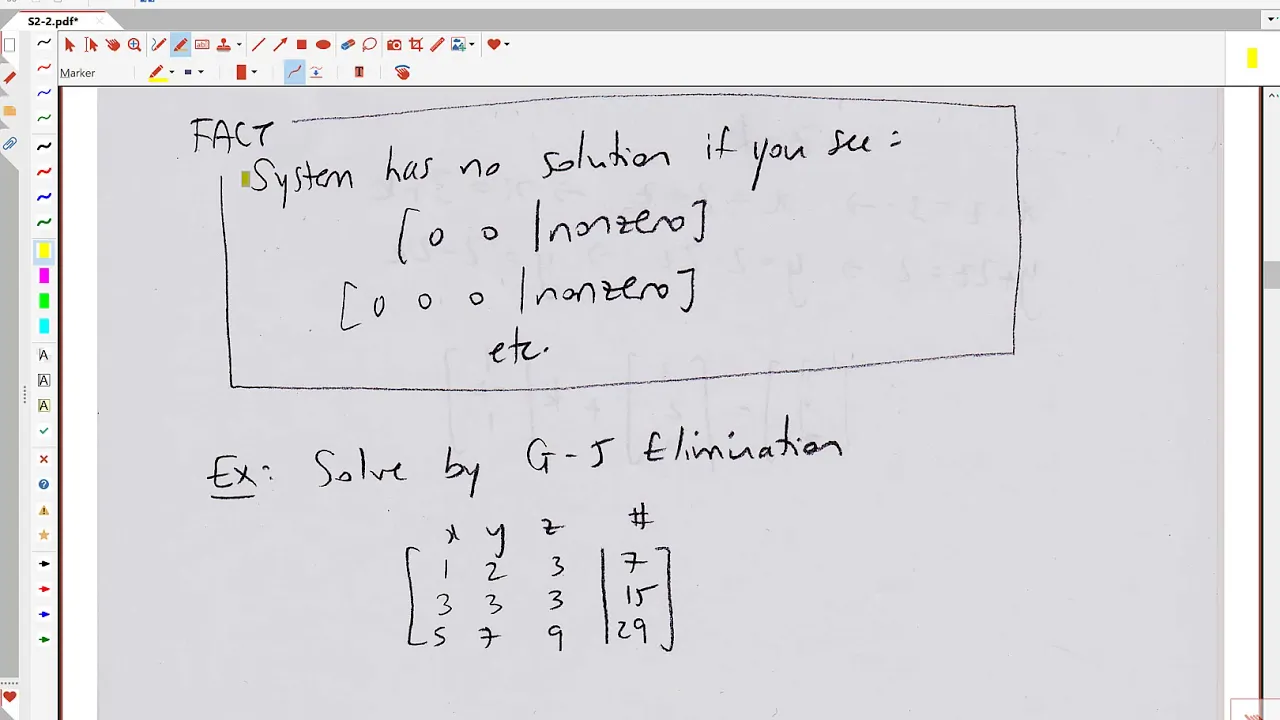 S2-2.pdf*
Marker
FACT
System has no solution if you see:
[0 0 | nonzero]
[0 0 0 | nonzero]
etc.
Ex: Solve by G-J Elimination
x y z #
1 2 3 | 7
3 3 3 | 15
5 7 9 | 29